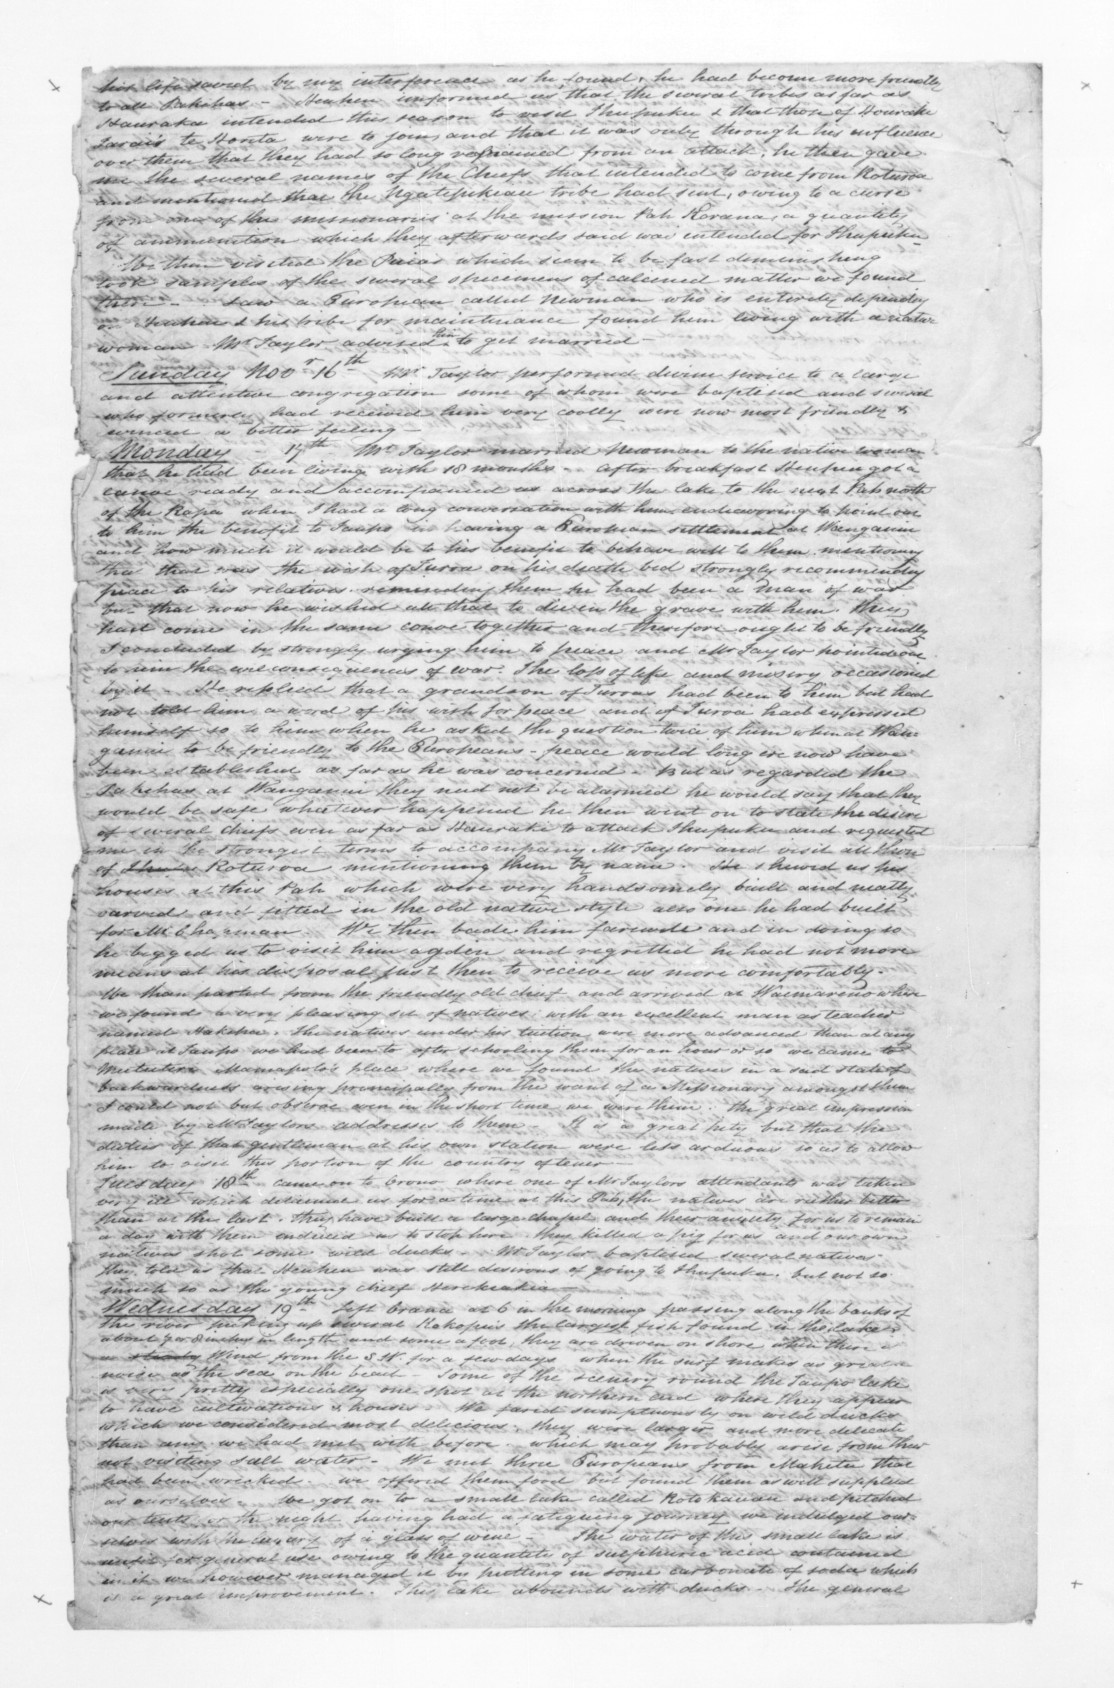 his life saved by my interference as he found, he had become more friendly
to all Pakehas - Heuheu informed us that the several tribes as far as
Hauraki intended this season to visit Ihupuku & that those of Hourake
Taraia te Horita were to join, and that it was only through his influence
over them that they had so long refrained from an attack, he then gave
me the several names of the Chiefs that intended to come from Roturoa
and mentioned that the Ngatepikeau tribe had sent, owing to a curse
from one of the missionaries at the mission Pah Korana, a quantity
of ammunition which they afterwards said was intended for Ihupuku -
We then visited the Puias which seem to be fast diminishing
took samples of the several specimens of calcined matter we found
there - Saw a European called Newman who is entirely depending
on Heuheu & his tribe for maintenance found him living with a native
woman Mr. Taylor advised him to get married -
Sunday Novr 16th - Mr. Taylor performed divine service to a large
and attentive congregation some of whom were baptised and several
who formerly had received him very coolly were now most friendly &
evinced a better feeling -
Monday - 17th Mr. Taylor married Newman to the native woman
that he had been living with 18 months - After breakfast Heuheu got a
canoe ready and accompanied us across the lake to the next Pah north
of the Rapa when I had a long conversation with him endeavoring to point out
to him the benefit to Taupo in having a European settlement at Wanganui
and how much it would be to his benefit to behave well to them mentioning
that that was the wish of Turoa on his death bed strongly recommending
peace to his relatives reminding them he had been a man of war
but that now he wished all that to die in the grave with him they
had come in the same canoe together and therefore ought to be friendly
I concluded by strongly urging him to peace and Mr Taylor pointed out
to him the evil consequences of war the loss of life and misery occasioned
by it - He replied that a grandson of Turoas had been to him but had
not told him a word of his wish for peace and if Turoa had expressed
himself so to him when he asked the question twice of him when at Wan-
ganui to be friendly to the Europeans - peace would long ere now have
been established as far as he was concerned - But as regarded the
Pakehas at Wanganui they need not be alarmed he would say that they
would be safe whatever happened he then went on to state the desire
of several chiefs even as far as Hauraki to attack Ihupuku and requested
me in the strongest terms to accompany Mr Taylor and visit all them
of Roturoa mentioning them by name. He shewed us his
houses at this Pah which were very handsomely built and neatly
carved and fitted in the old native style also one he had built
for Mr Chapman We then bade him farewell and in doing so
he begged us to visit him again and regretted he had not more
means at his disposal just then to receive us more comfortably.
We then parted from the friendly old chief and arrived at Waimarino where
we found a very pleasing set of natives with an excellent man as teacher
named Hakopa. The natives under his tuition were more advanced than at any
place at Taupo we had been to after schooling them for an hour or so we came to
Motutere Mamapolo's place where we found the natives in a sad state of
backwardness arising principally from the want of a Missionary amongst them
I could not but observe even in the short time we were there the great impression
made by Mr Taylors addresses to them - It is a great pity but that the
duties of that gentleman at his own station were less arduous so as to allow
him to visit this portion of the country oftener -
Tuesday 18th came on to Orono where one of Mr Taylors attendants was taken
very ill which detained us for a time at this Pah, the natives are rather better
than at the last. they have built a large chapel and their anxiety for us to remain
a day with them induced us to stop here. they killed a pig for us and our own
natives shot some wild ducks - Mr Taylor baptised several natives -
they told us that Heuheu was still desirous of going to Ihupuku but not so
much so as the young chief Herekiekie -
Wednesday 19th - Left Orono at 6 in the morning passing along the banks of
the river picking up several Kokopus the largest fish found in this lake,
about 7 or 8 inches in length and some a foot, they are driven on shore when there is
a Wind from the S.W. for a few days when the surf makes as great a
noise as the sea on the beach - Some of the scenery round the Taupo Lake
is very pretty especially one spot at the northern end where they appear
to have cultivations & houses - We fared sumptuously on wild ducks
which we considered most delicious. they were larger and more delicate
than any we had met with before. which may probably arise from their
not visiting salt water - We met three Europeans from Maketu that
had been wrecked - we offered them food but found them as well supplied
as ourselves - We got on to a small lake called Rotokawau and pitched
our tents for the night having had a fatiguing journey we indulged our-
selves with the luxury of a glass of wine - The water of this small lake is
unfit for general use owing to the quantity of sulphuric acid contained
in it we however managed it by putting in some carbonate of soda which
is a great improvement. This lake abounds with ducks - The general